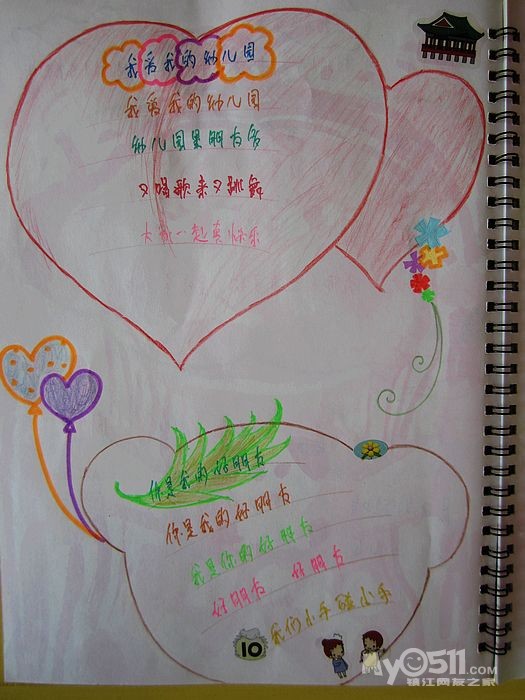 我爱我的幼儿园
我爱我的幼儿园
幼儿园里朋友多
又唱歌来又跳舞
大家一起真快乐
你是我的好朋友
你是我的好朋友
我是你的好朋友
好朋友 好朋友
我们小手碰小手
10
My0511.com
镇江网友之家